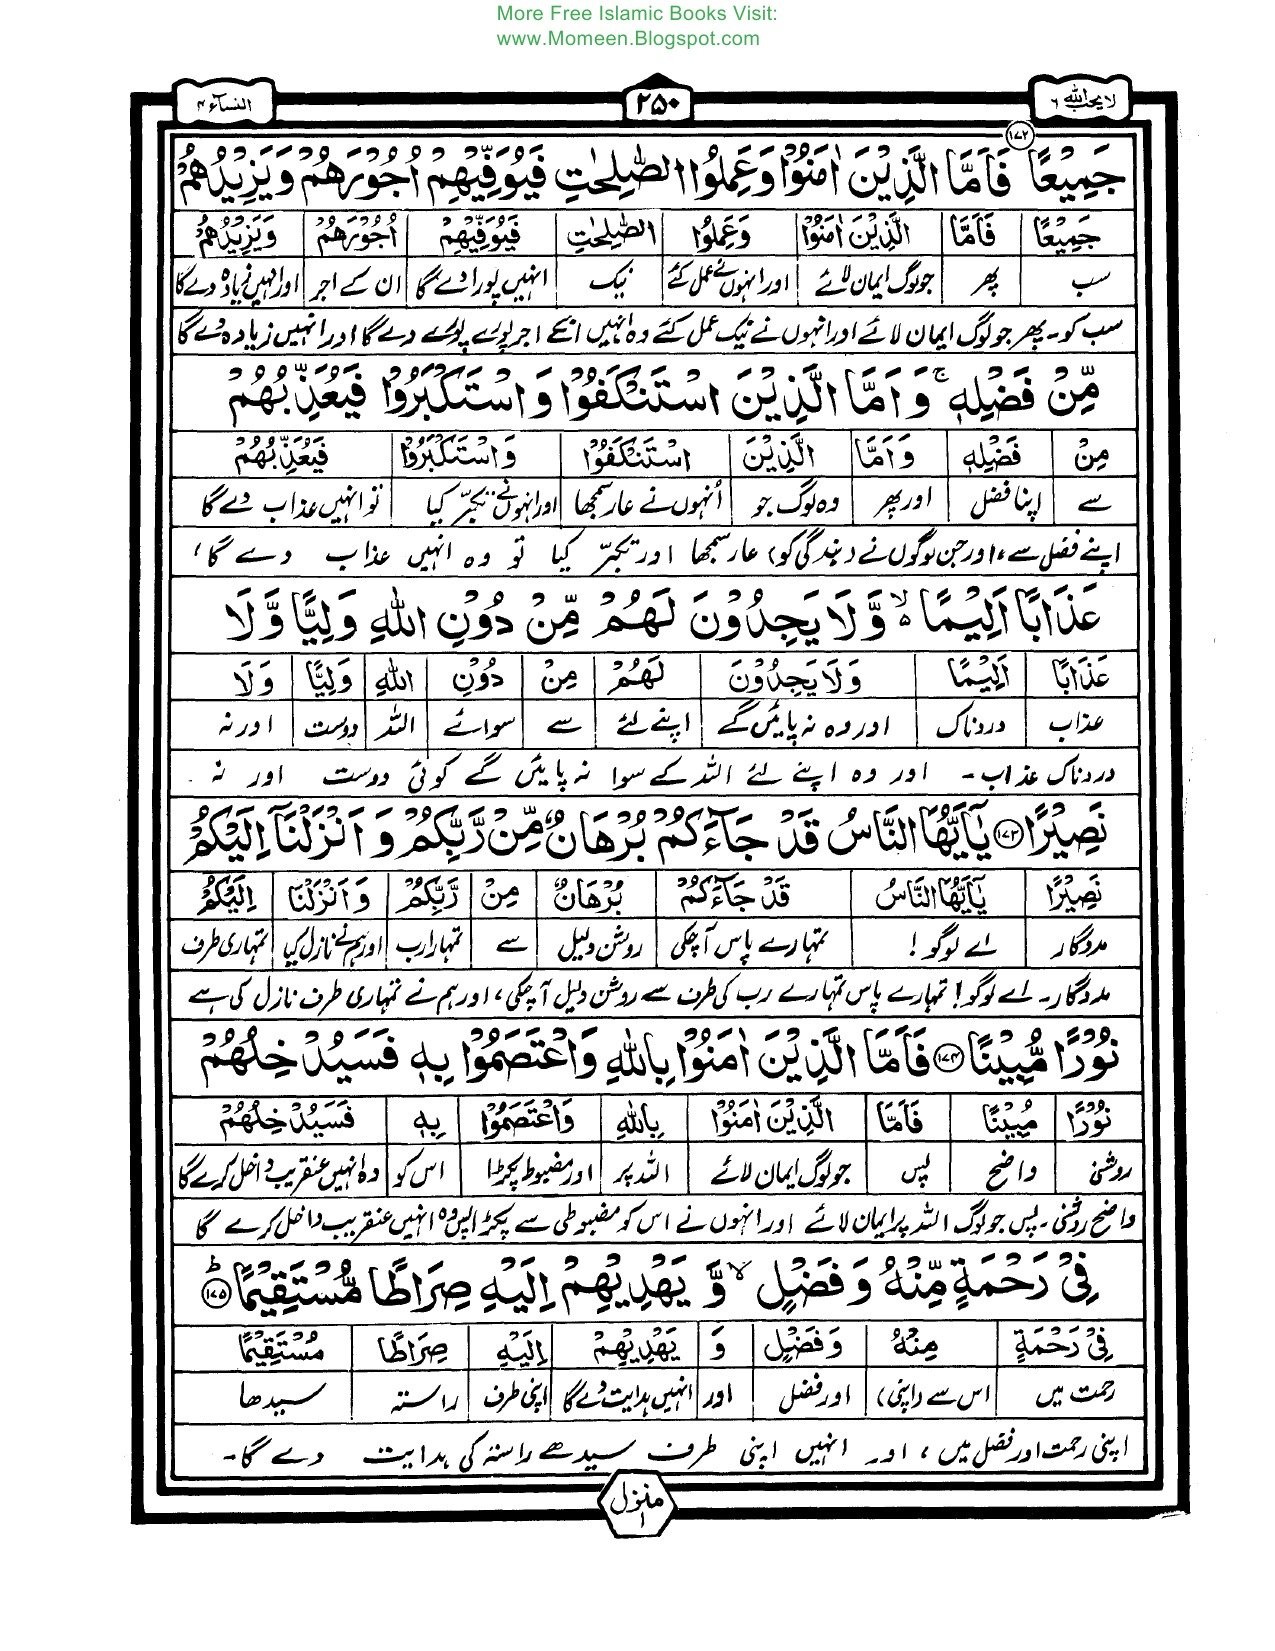 More Free Islamic Books Visit:
www.Momeen.Blogspot.com
لا یحب اللہ ۶ ۲۵۰ النسآء ۴
جَمِيْعًا ﴿۱۷۲﴾ فَاَمَّا الَّذِيْنَ اٰمَنُوْا وَعَمِلُوا الصّٰلِحٰتِ فَيُوَفِّيْهِمْ اُجُوْرَهُمْ وَيَزِيْدُهُمْ
جَمِيْعًا فَاَمَّا الَّذِيْنَ اٰمَنُوْا وَعَمِلُوا الصّٰلِحٰتِ فَيُوَفِّيْهِمْ اُجُوْرَهُمْ وَيَزِيْدُهُمْ
سب پھر جو لوگ ایمان لائے اور انہوں نے عمل کئے نیک انہیں پورا دے گا ان کے اجر اور انہیں زیادہ دے گا
سب کو۔ پھر جو لوگ ایمان لائے اور انہوں نے نیک عمل کئے وہ انہیں انکے اجر پورے پورے دے گا اور انہیں زیادہ دے گا
مِّنْ فَضْلِهٖ ۚ وَاَمَّا الَّذِيْنَ اسْتَنْكَفُوْا وَاسْتَكْبَرُوْا فَيُعَذِّبُهُمْ
مِنْ فَضْلِهٖ وَاَمَّا الَّذِيْنَ اسْتَنْكَفُوْا وَاسْتَكْبَرُوْا فَيُعَذِّبُهُمْ
سے اپنا فضل اور پھر وہ لوگ جو اُنہوں نے عار سمجھا اور انہوں نے تکبّر کیا تو انہیں عذاب دے گا
اپنے فضل سے، اور جن لوگوں نے (بندگی کو) عار سمجھا اور تکبّر کیا تو وہ انہیں عذاب دے گا،
عَذَابًا اَلِيْمًا ۙ وَّلَا يَجِدُوْنَ لَهُمْ مِّنْ دُوْنِ اللهِ وَلِيًّا وَّلَا
عَذَابًا اَلِيْمًا وَلَا يَجِدُوْنَ لَهُمْ مِنْ دُوْنِ اللهِ وَلِيًّا وَّلَا
عذاب دردناک اور وہ نہ پائیں گے اپنے لئے سے سوائے اللہ دوست اور نہ
دردناک عذاب۔ اور وہ اپنے لئے اللہ کے سوا نہ پائیں گے کوئی دوست اور نہ
نَصِيْرًا ﴿۱۷۳﴾ يٰٓاَيُّهَا النَّاسُ قَدْ جَآءَكُمْ بُرْهَانٌ مِّنْ رَّبِّكُمْ وَاَنْزَلْنَآ اِلَيْكُمْ
نَصِيْرًا يٰٓاَيُّهَا النَّاسُ قَدْ جَآءَكُمْ بُرْهَانٌ مِنْ رَّبِّكُمْ وَاَنْزَلْنَا اِلَيْكُمْ
مددگار اے لوگو! تمہارے پاس آچکی روشن دلیل سے تمہارا رب اور ہم نے نازل کیا تمہاری طرف
مددگار۔ اے لوگو! تمہارے پاس تمہارے رب کی طرف سے روشن دلیل آچکی، اور ہم نے تمہاری طرف نازل کی ہے
نُوْرًا مُّبِيْنًا ﴿۱۷۴﴾ فَاَمَّا الَّذِيْنَ اٰمَنُوْا بِاللهِ وَاعْتَصَمُوْا بِهٖ فَسَيُدْخِلُهُمْ
نُوْرًا مُبِيْنًا فَاَمَّا الَّذِيْنَ اٰمَنُوْا بِاللهِ وَاعْتَصَمُوْا بِهٖ فَسَيُدْخِلُهُمْ
روشنی واضح پس جو لوگ ایمان لائے اللہ پر اور مضبوط پکڑا اس کو وہ انہیں عنقریب داخل کرے گا
واضح روشنی۔ پس جو لوگ اللہ پر ایمان لائے اور انہوں نے اس کو مضبوطی سے پکڑا پس وہ انہیں عنقریب داخل کرے گا
فِيْ رَحْمَةٍ مِّنْهُ وَفَضْلٍ ۙ وَّيَهْدِيْهِمْ اِلَيْهِ صِرَاطًا مُّسْتَقِيْمًا ؕ ﴿۱۷۵﴾
فِيْ رَحْمَةٍ مِنْهُ وَفَضْلٍ وَ يَهْدِيْهِمْ اِلَيْهِ صِرَاطًا مُسْتَقِيْمًا
رحمت میں اس سے (اپنی) اور فضل اور انہیں ہدایت دے گا اپنی طرف راستہ سیدھا
اپنی رحمت اور فضل میں، اور انہیں اپنی طرف سیدھے راستہ کی ہدایت دے گا۔
منزل ۱